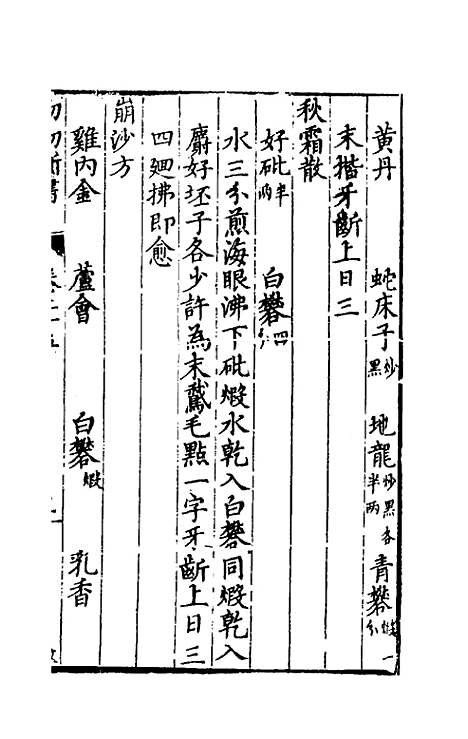 黄丹 蛇床子炒黑 地龍炒黑各半两 青礬煅一分
末揩牙齗上日三
秋霜散
好砒半两 白礬四
水三分煎海眼沸下砒煅水乾入白礬同煅乾入
麝好坯子各少許為末鵞毛點一字牙齗上日三
四廻拂即愈
崩沙方
雞内金 蘆會 白礬煅 乳香